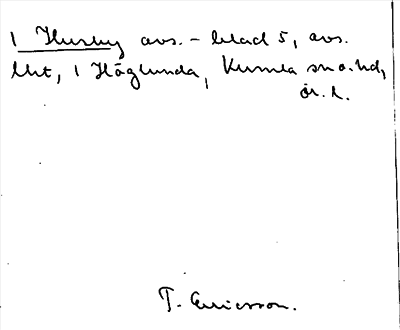 1 Husby avs. - blad 5, avs.
litt, 1 Höglunda, Kumla sn o. hd,
ör. l.
T. Ericsson.